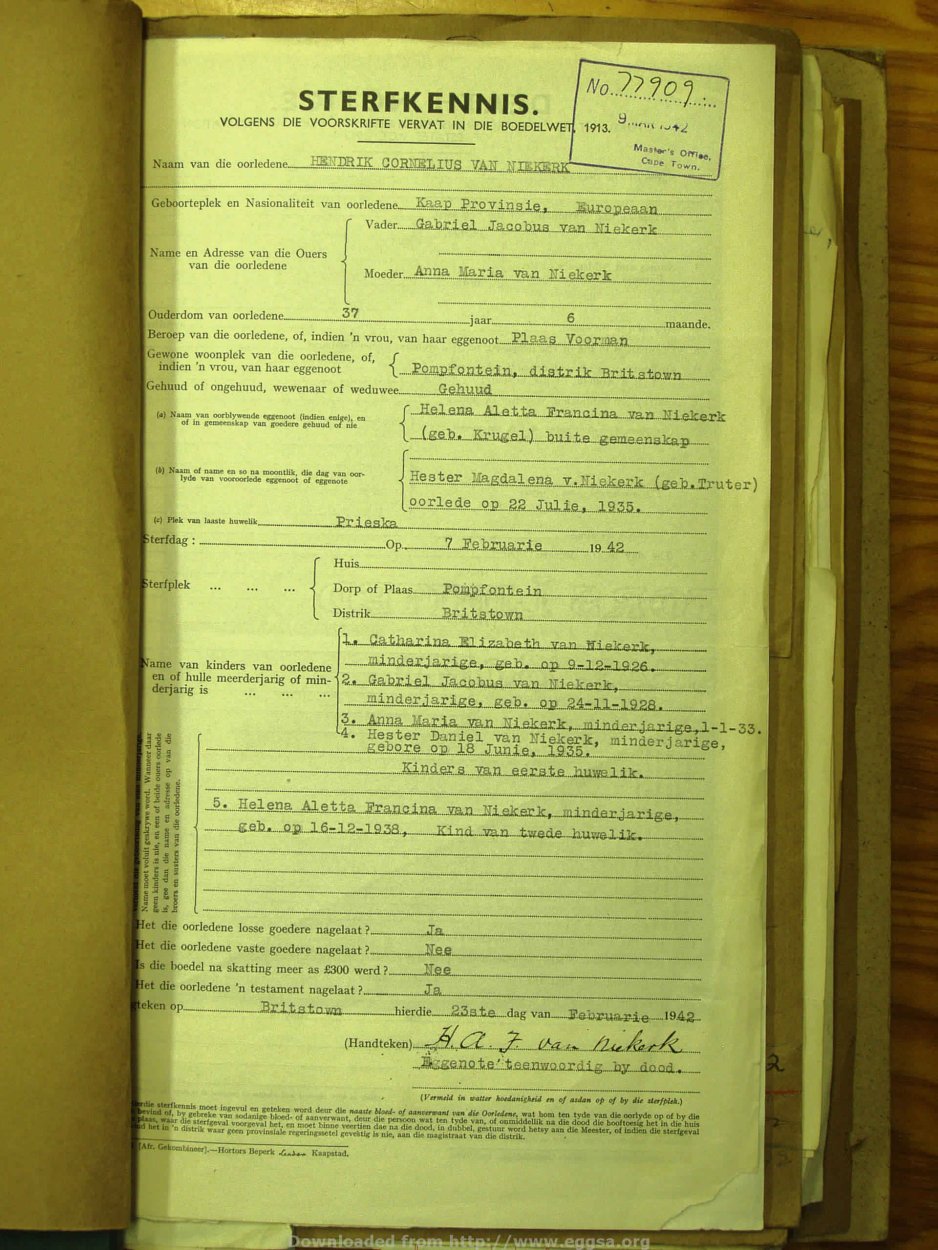 No. 77909
STERFKENNIS.
VOLGENS DIE VOORSKRIFTE VERVAT IN DIE BOEDELWET, 1913.
Master's Office,
Cape Town.
Naam van die oorledene HENDRIK CORNELIUS VAN NIEKERK
Geboorteplek en Nasionaliteit van oorledene Kaap Provinsie, Europeaan
Vader Gabriel Jacobus van Niekerk
Name en Adresse van die Ouers
van die oorledene
Moeder Anna Maria van Niekerk
Ouderdom van oorledene 37 jaar 6 maande.
Beroep van die oorledene, of, indien 'n vrou, van haar eggenoot Plaas Voorman
Gewone woonplek van die oorledene, of,
indien 'n vrou, van haar eggenoot Pompfontein, distrik Britstown
Gehuud of ongehuud, wewenaar of weduwee Gehuud
(a) Naam van oorblywende eggenoot (indien enige), en
of in gemeenskap van goedere gehuud of nie
Helena Aletta Francina van Niekerk
(geb. Krugel) buite gemeenskap
(b) Naam of name en so na moontlik, die dag van oor-
lyde van vooroorlede eggenoot of eggenote
Hester Magdalena v.Niekerk (geb.Truter)
oorlede op 22 Julie, 1935.
(c) Plek van laaste huwelik Prieska
Sterfdag : Op 7 Februarie 19 42
Huis
Sterfplek ... ... ... Dorp of Plaas Pompfontein
Distrik Britstown
Name van kinders van oorledene
en of hulle meerderjarig of min-
derjarig is ... ... ...
1. Catharina Elizabeth van Niekerk,
minderjarige, geb. op 9-12-1926.
2. Gabriel Jacobus van Niekerk,
minderjarige, geb. op 24-11-1928.
3. Anna Maria van Niekerk, minderjarige,1-1-33.
4. Hester Daniel van Niekerk, minderjarige,
gebore op 18 Junie, 1935.
Kinders van eerste huwelik.
Name moet voluit geskrywe word. Wanneer daar
geen kinders is nie, en een of beide ouers oorlede
is, gee dan die name en adresse op van die
broers en susters van die oorledene.
5. Helena Aletta Francina van Niekerk, minderjarige,
geb. op 16-12-1938, Kind van twede huwelik.
Het die oorledene losse goedere nagelaat ? Ja
Het die oorledene vaste goedere nagelaat ? Nee
Is die boedel na skatting meer as £300 werd ? Nee
Het die oorledene 'n testament nagelaat ? Ja
teken op Britstown hierdie 23ste dag van Februarie 1942
(Handteken) H. A. F van Niekerk
Eggenote' teenwoordig by dood.
(Vermeld in watter hoedanigheid en of aldan op of by die sterfplek.)
die sterfkennis moet ingevul en geteken word deur die naaste bloed- of aanverwant van die Oorledene, wat hom ten tyde van die oorlyde op of by die
bevind of, by gebreke van sodanige bloed- of aanverwant, deur die persoon wat ten tyde van, of onmiddellik na die dood die hooftoesig het in die huis
plaas, waar die sterfgeval voorgeval het, en moet binne veertien dae na die dood, in dubbel, gestuur word hetsy aan die Meester, of indien die sterfgeval
het in 'n distrik waar geen provinsiale regeringssetel gevestig is nie, aan die magistraat van die distrik.
[Afr. Gekombineer].—Hortors Beperk Kaapstad.
2
Downloaded from http://www.eggsa.org